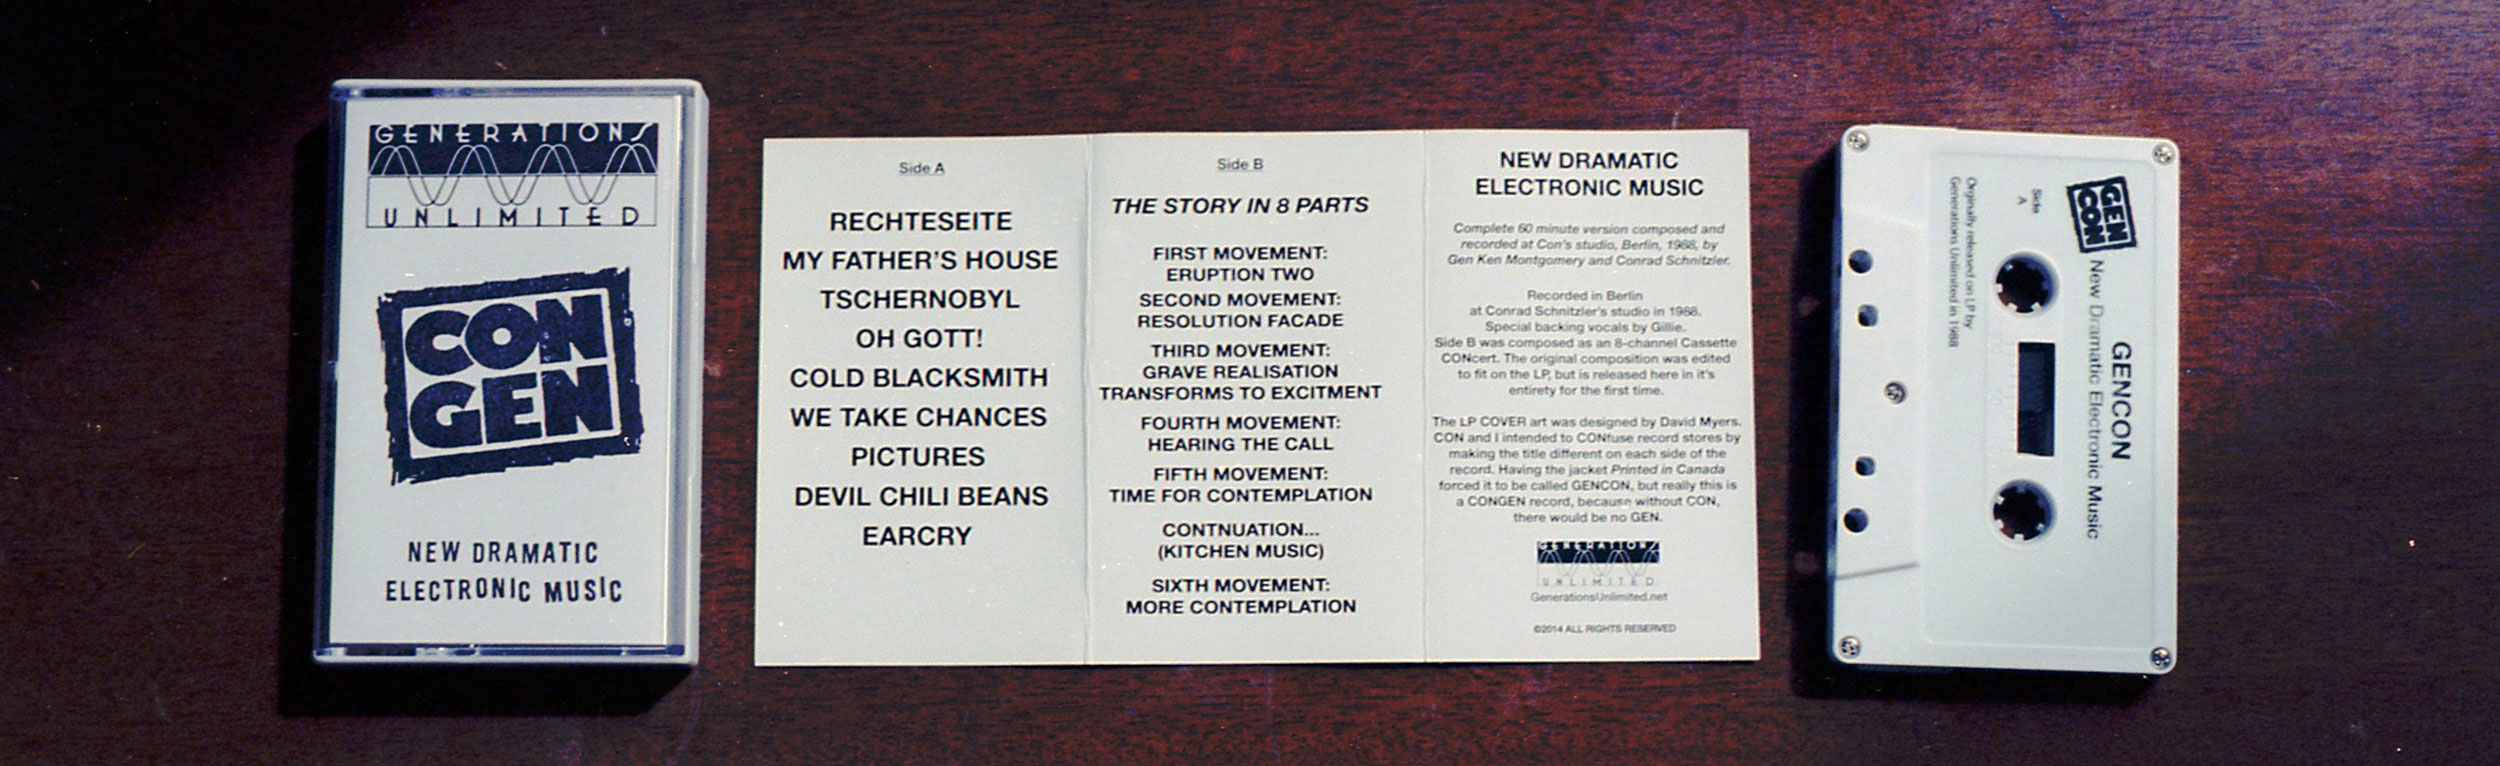 GENERATIONS
UNLIMITED
CON
GEN
NEW DRAMATIC
ELECTRONIC MUSIC
Side A
RECHTESEITE
MY FATHER'S HOUSE
TSCHERNOBYL
OH GOTT!
COLD BLACKSMITH
WE TAKE CHANCES
PICTURES
DEVIL CHILI BEANS
EARCRY
Side B
THE STORY IN 8 PARTS
FIRST MOVEMENT:
ERUPTION TWO
SECOND MOVEMENT:
RESOLUTION FACADE
THIRD MOVEMENT:
GRAVE REALISATION
TRANSFORMS TO EXCITMENT
FOURTH MOVEMENT:
HEARING THE CALL
FIFTH MOVEMENT:
TIME FOR CONTEMPLATION
CONTNUATION...
(KITCHEN MUSIC)
SIXTH MOVEMENT:
MORE CONTEMPLATION
NEW DRAMATIC
ELECTRONIC MUSIC
Complete 60 minute version composed and
recorded at Con's studio, Berlin, 1988, by
Gen Ken Montgomery and Conrad Schnitzler.
Recorded in Berlin
at Conrad Schnitzler's studio in 1988.
Special backing vocals by Gillie.
Side B was composed as an 8-channel Cassette
CONcert. The original composition was edited
to fit on the LP, but is released here in it's
entirety for the first time.
The LP COVER art was designed by David Myers.
CON and I intended to CONfuse record stores by
making the title different on each side of the
record. Having the jacket Printed in Canada
forced it to be called GENCON, but really this is
a CONGEN record, because without CON,
there would be no GEN.
GENERATIONS
UNLIMITED
GenerationsUnlimited.net
©2014 ALL RIGHTS RESERVED
GEN
CON
GENCON
New Dramatic Electronic Music
Side
A
Orginally released on LP by
Generations Unlimited in 1988